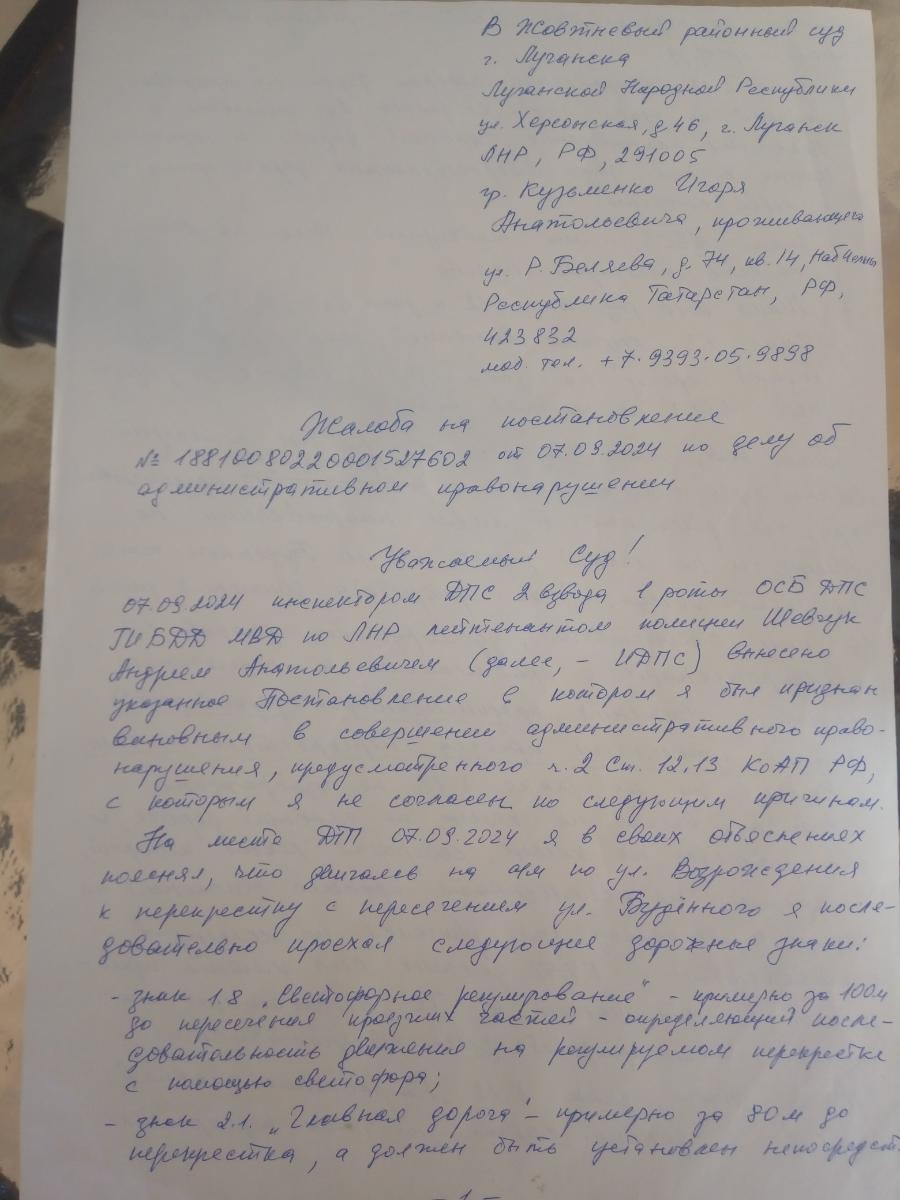 В Жовтневый районный суд
г. Луганска
Луганской Народной Республики
ул. Херсонская, д. 46, г. Луганск
ЛНР, РФ, 291005
гр. Кузьменко Игоря
Анатольевича, проживающего
ул. Р. Беляева, д. 74, кв. 14, Наб Челны
Республика Татарстан, РФ,
423832
моб. тел. +7·9393·05·9898
Жалоба на постановление
№ 18810080220001527602 от 07.09.2024 по делу об
административном правонарушении
Уважаемый Суд!
07.09.2024 инспектором ДПС 2 взвода 1 роты ОСБ ДПС
ГИБДД МВД по ЛНР лейтенантом полиции Шевчук
Андреем Анатольевичем (далее, – ИДПС) вынесено
указанное Постановление в котором я был признан
виновным в совершении административного право-
нарушения, предусмотренного ч. 2 Ст. 12.13 КоАП РФ,
с которым я не согласен по следующим причинам.
На месте ДТП 07.09.2024 я в своих объяснениях
пояснял, что двигаясь на а/м по ул. Возрождения
к перекрестку с пересечением ул. Будённого я после-
довательно проехал следующие дорожные знаки:
- знак 1.8 „Светофорное регулирование" – примерно за 100м
до пересечения проезжих частей – определяющий после-
довательность движения на регулируемом перекрестке
с помощью светофора;
- знак 2.1. „Главная дорога" – примерно за 80 м до
перекрестка, а должен быть установлен непосредст
- 1 -